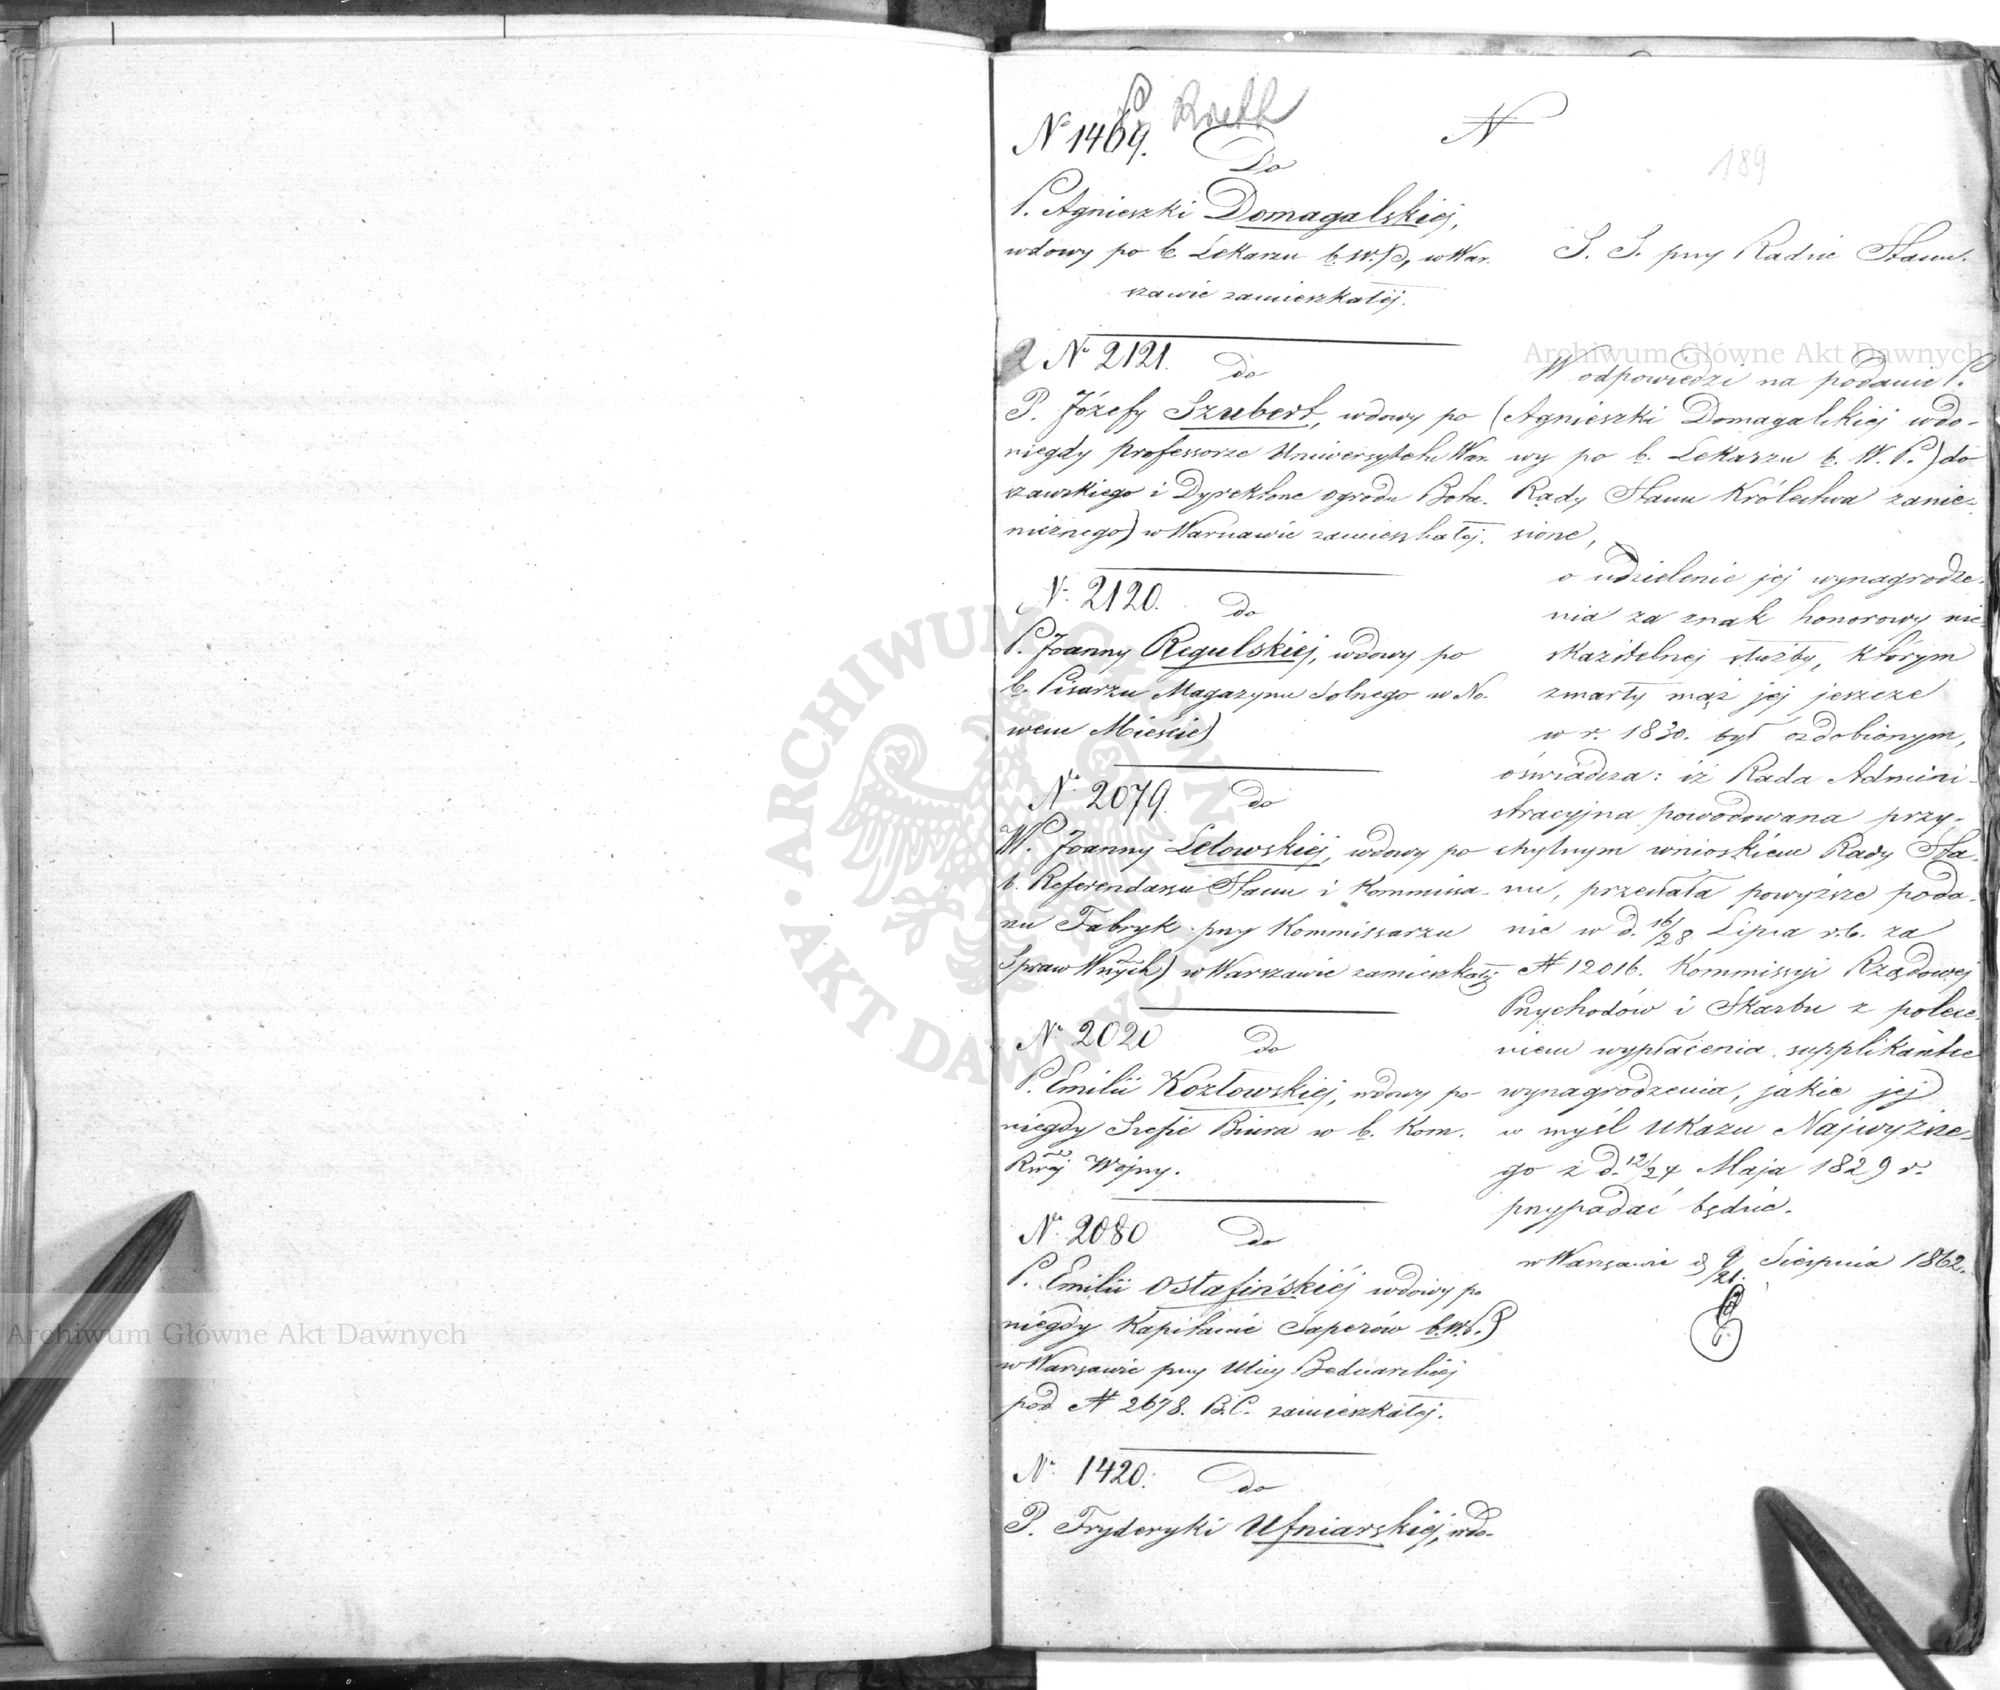 № 1469.
Do
P. Agnieszki Domagalskiej,
wdowy po b. Lekarzu b. W. P., w War-
szawie zamieszkałéj.
2 № 2121. do
P. Józefy Szubert, wdowy po
niegdy Professorze Uniwersytetu War-
szawskiego i Dyrektorze Ogrodu Bota-
nicznego) w Warszawie zamieszkałej.
№ 2120. do
P. Joanny Regulskiéj, wdowy po
b. Pisarzu Magazynu Solnego w No-
wem Mieście)
№ 2079. do
W. Joanny Lelowskiéj, wdowy po
b. Referendarzu Stanu i Kommissa-
rzu Fabryk przy Kommissarzu
Spraw Wnych) w Warszawie zamieszkałéj
№ 2020 do
P. Emilii Kozłowskiej, wdowy po
niegdy Szefie Biura w b. Kom.
Rwej Wojny.
№ 2080 do
P. Emilii Ostafińskiéj wdowy po
niegdy Kapitanie Saperów b. W. P.)
w Warszawie przy Ulicy Bednarskiej
pod N 2678. B.C. zamieszkałej.
№ 1420. do
P. Fryderyki Ufniarskiej, wdo-
N
189
S. S. przy Radzie Stanu.
W odpowiedzi na podanie P.
(Agnieszki Domagalskiej wdo-
wy po b. Lekarzu b. W. P.) do
Rady Stanu Królestwa zanie-
sione,
o udzielenie jej wynagrodze-
nia za znak honorowy nie-
skazitelnej służby, którym
zmarły mąż jej jeszcze
w r. 1830. był ozdobionym,
oświadcza: iż Rada Admini-
stracyjna powodowana przy-
chylnym wnioskiem Rady Sta-
nu, przesłała powyższe poda-
nie w d. 16/28 Lipca r.b. za
N 12016. Kommissyi Rządowej
Przychodów i Skarbu z polece-
niem wypłacenia supplikantce
wynagrodzenia, jakie jej
w myśl Ukazu Najwyższe-
go z d. 12/24 Maja 1829 r.
przypadać będzie.
w Warszawie d. 9/21. Sierpnia 1862.
Archiwum Główne Akt Dawnych
Archiwum Główne Akt Dawnych
ARCHIWUM GŁÓWNE AKT DAWNYCH